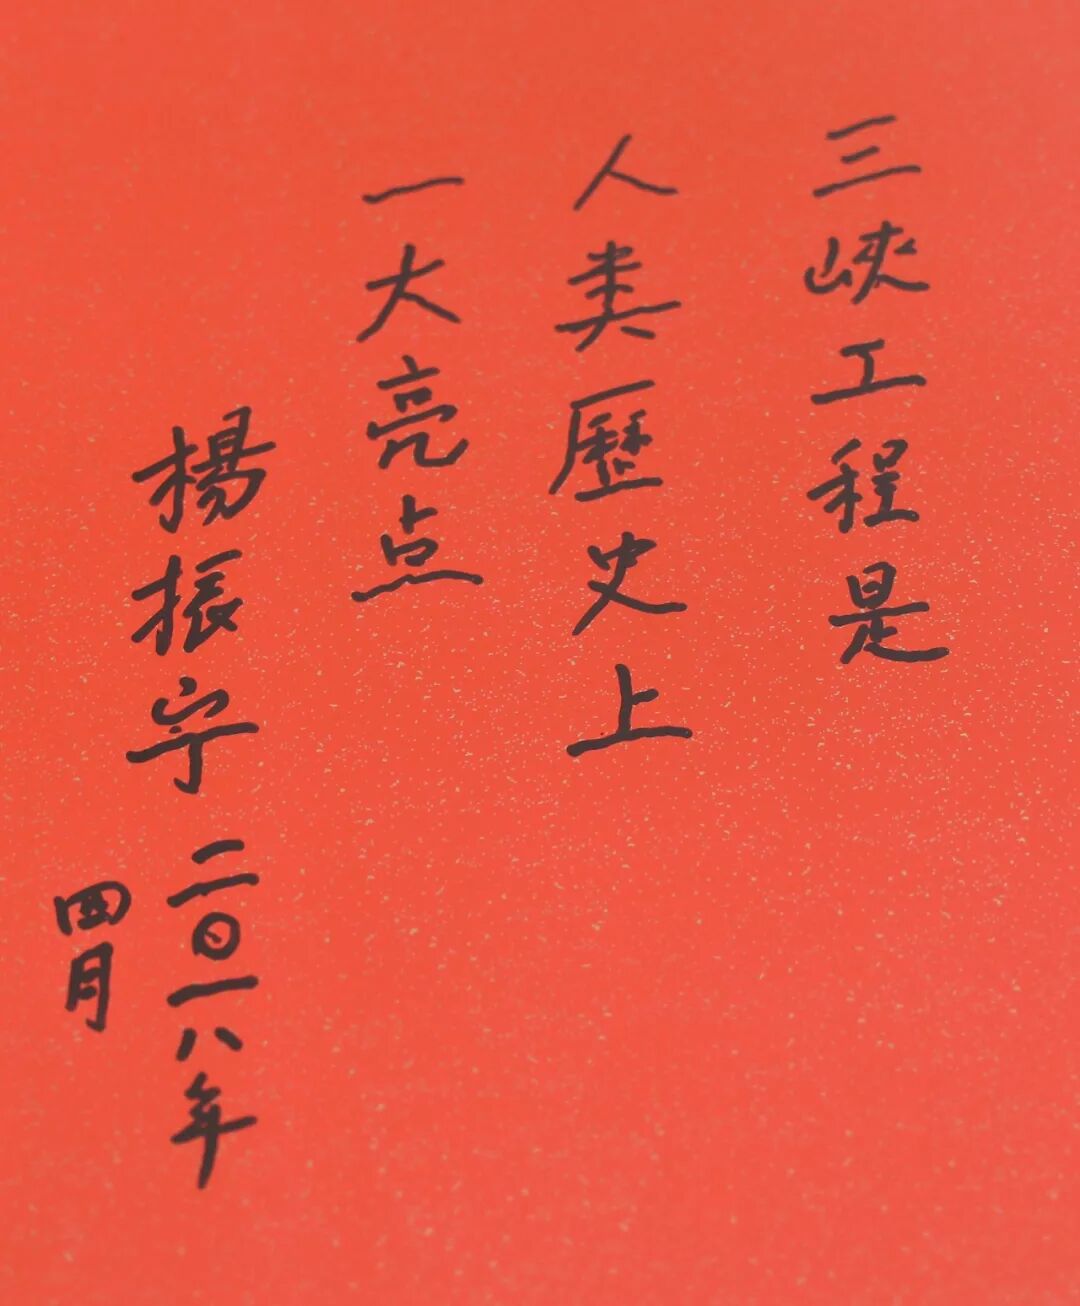 三峽工程是
人类歷史上
一大亮点
楊振宁 二〇一八年
四月